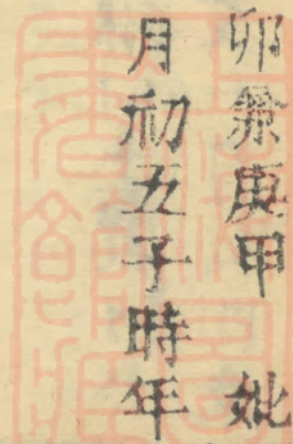 卯叅庚甲 妣
月初五子時年